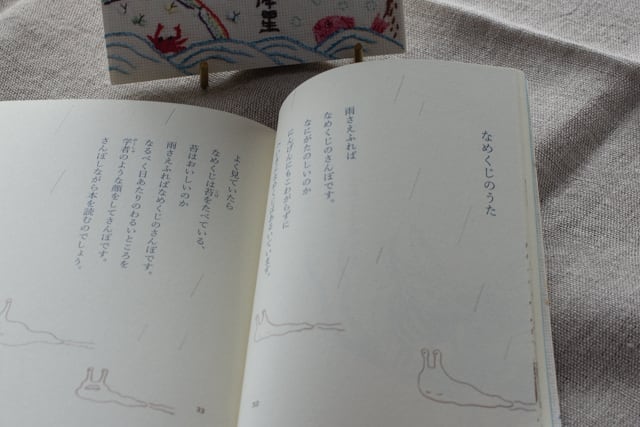 星
なめくじのうた
雨さえふれば
なめくじのさんぽです。
なにがたのしいのか
にんげんにもこわがらずに
あるいています。
32
よく見ていたら
なめくじは苔をたべている、
苔はおいしいのか
雨さえふればなめくじのさんぽです。
なるべく日あたりのわるいところを
学者のような顔をしてさんぽです。
さんぽしながら本を読むのでしょう。
33